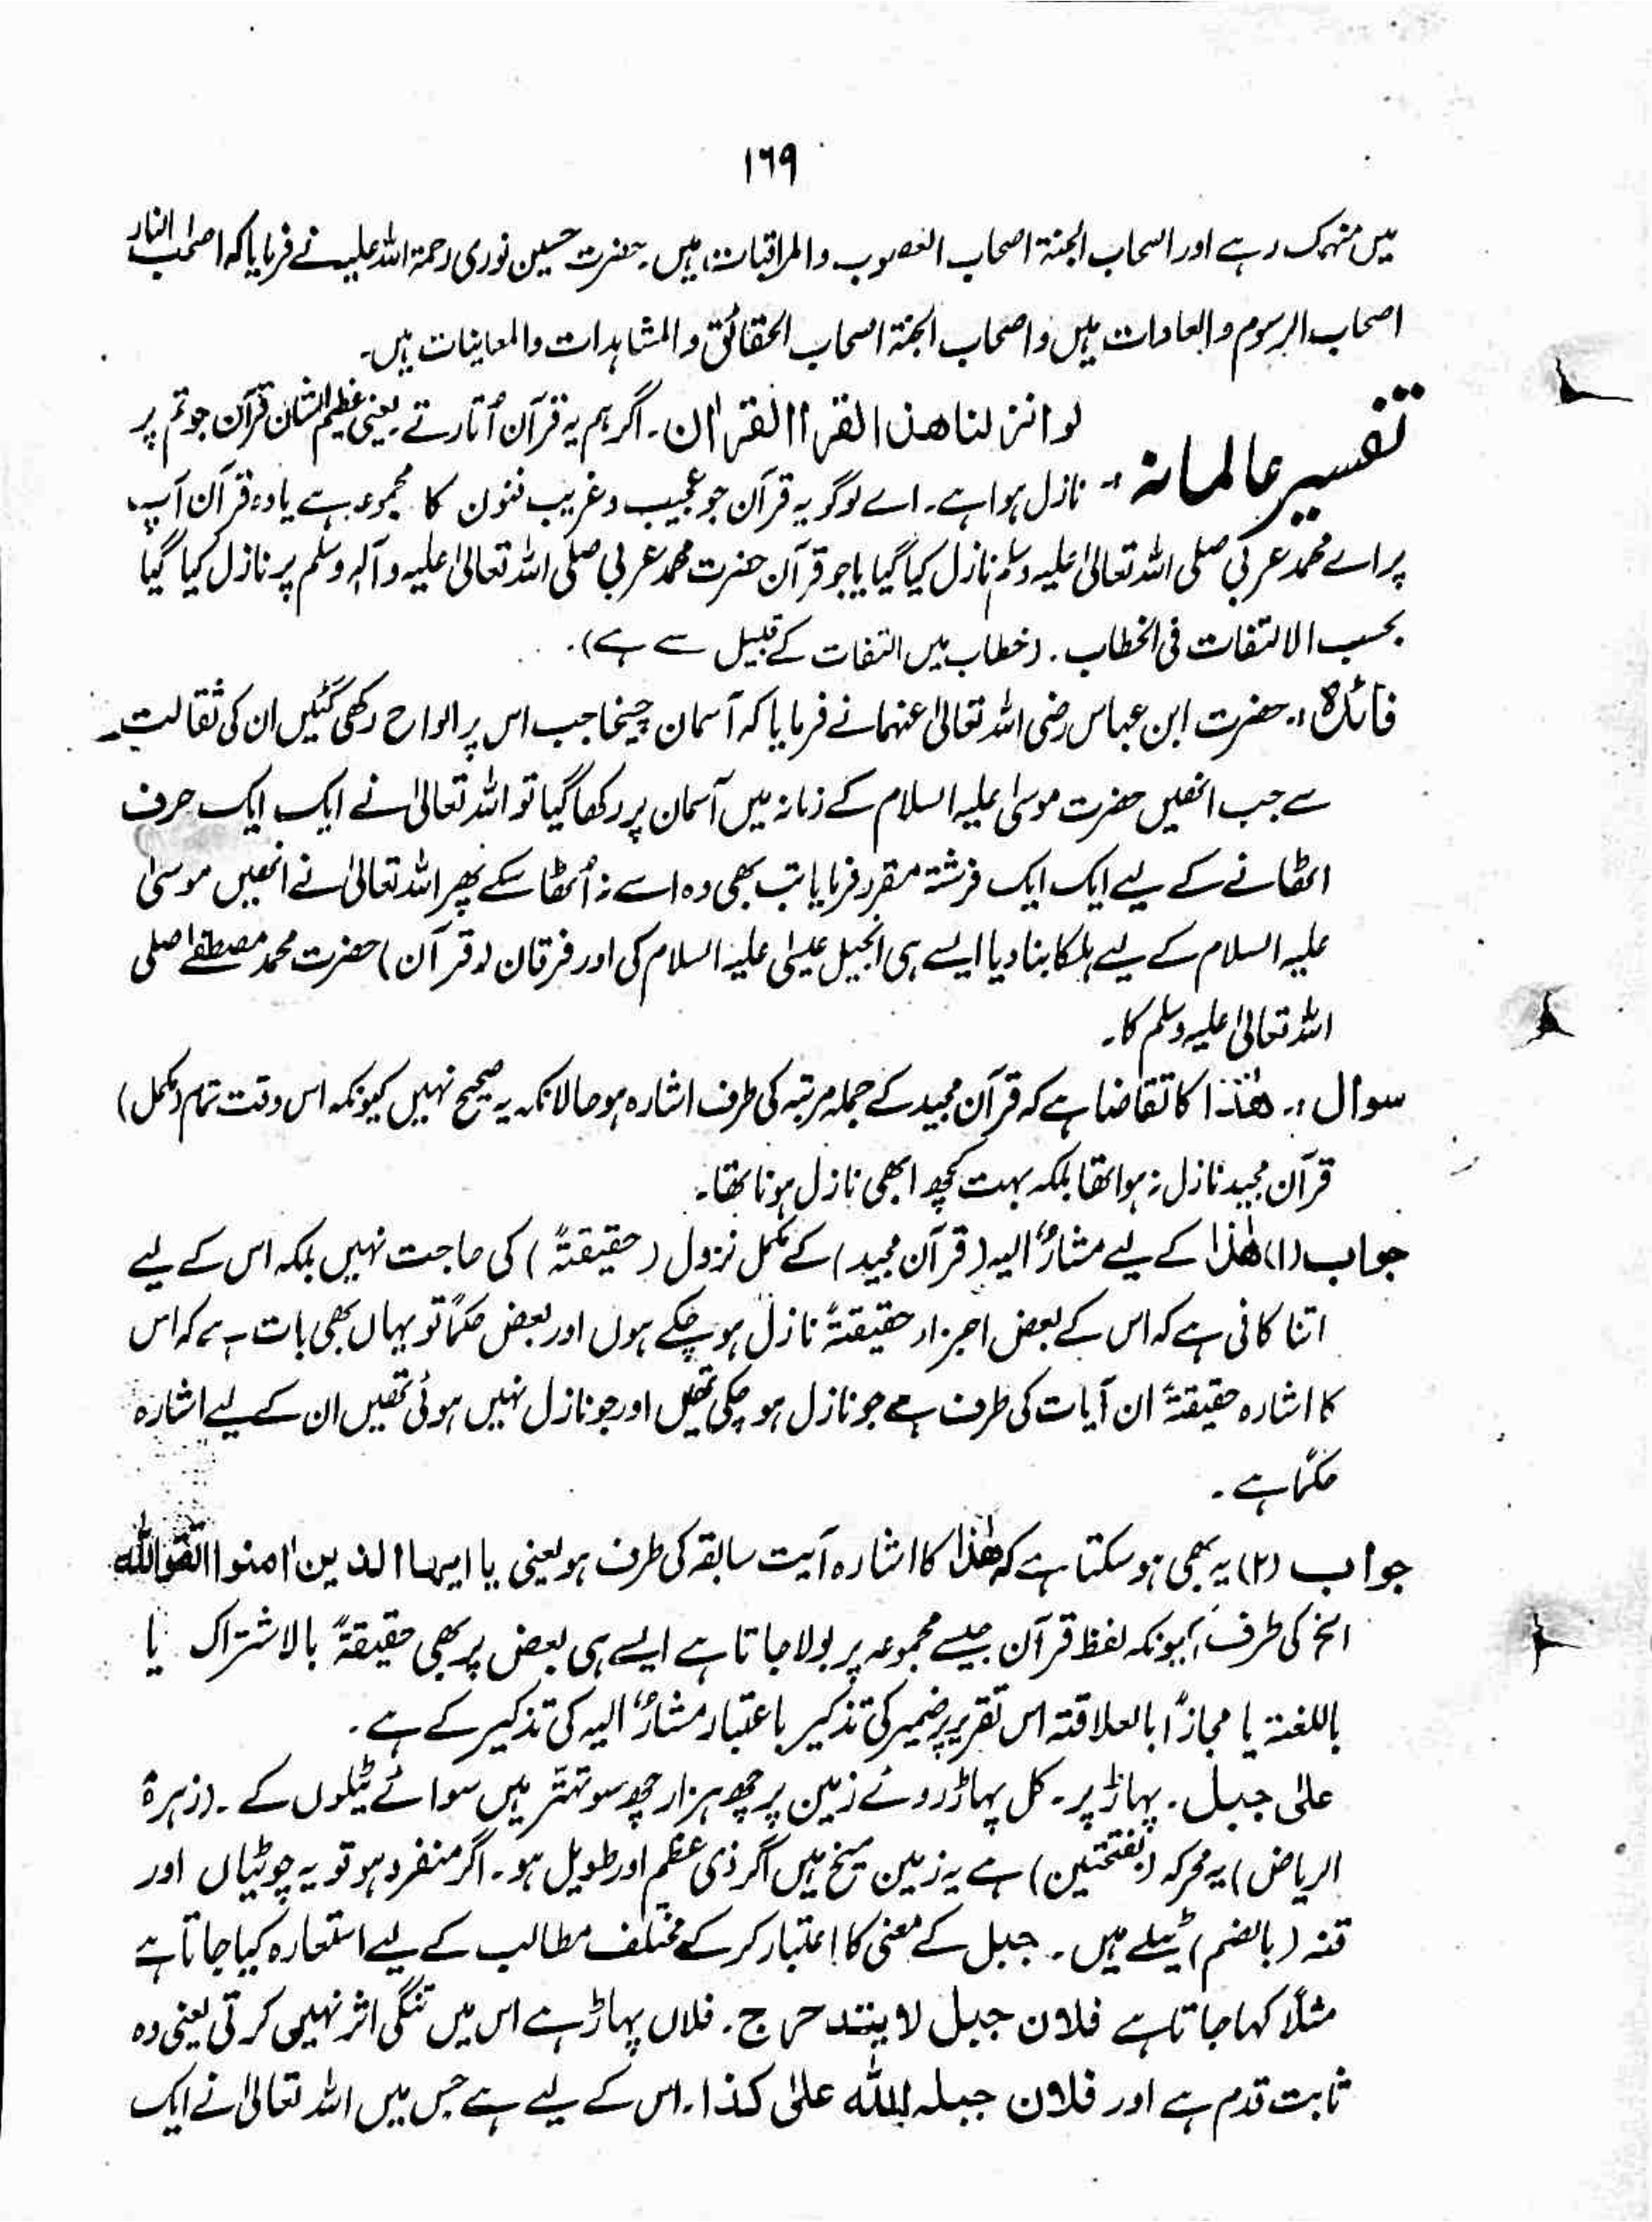 ۱۶۹
میں منہمک رہے اور اصحاب الجنۃ اصحاب القصوب والمراقبات ہیں۔ حضرت حسین نوری رحمۃ اللہ علیہ نے فرمایا کہ اصحٰب النار
اصحاب الرسوم والعادات ہیں واصحاب الجنۃ اصحاب الحقائق والمشاہدات والمعاینات ہیں۔
تفسیر عالمانہ :- لو انزلنا هذا القرا القراٰن۔ اگر ہم یہ قرآن اُتارتے یعنی عظیم الشان قرآن جو تم پر
نازل ہوا ہے۔ اے لوگو یہ قرآن جو عجیب و غریب فنون کا مجموعہ ہے یا وہ قرآن آپ
پر اے محمد عربی صلی اللہ تعالیٰ علیہ وسلم نازل کیا گیا یا جو قرآن حضرت محمد عربی صلی اللہ تعالیٰ علیہ وآلہٖ وسلم پر نازل کیا گیا
بحسب الالتفات فی الخطاب۔ (خطاب میں التفات کے قبیل سے ہے)۔
فائدہ :۔ حضرت ابن عباس رضی اللہ تعالیٰ عنہما نے فرمایا کہ آسمان چیخا جب اس پر الواح رکھی گئیں ان کی ثقالت
سے جب انھیں حضرت موسیٰ علیہ السلام کے زمانہ میں آسمان پر رکھا گیا تو اللہ تعالیٰ نے ایک ایک حرف
اٹھانے کے لیے ایک ایک فرشتہ مقرر فرمایا تب بھی وہ اسے نہ اُٹھا سکے پھر اللہ تعالیٰ نے انھیں موسیٰ
علیہ السلام کے لیے ہلکا بنا دیا ایسے ہی انجیل عیسٰی علیہ السلام کی اور فرقان (قرآن) حضرت محمد مصطفےٰ صلی
اللہ تعالیٰ علیہ وسلم کا۔
سوال :۔ هٰذا کا تقاضا ہے کہ قرآن مجید کے جملہ مرتبہ کی طرف اشارہ ہو حالانکہ یہ صحیح نہیں کیونکہ اس وقت تمام (مکمل)
قرآن مجید نازل نہ ہوا تھا بلکہ بہت کچھ ابھی نازل ہونا تھا۔
جواب (۱) هٰذا کے لیے مشارٌ الیہ (قرآن مجید) کے مکمل نزول (حقیقۃً) کی حاجت نہیں بلکہ اس کے لیے
اتنا کافی ہے کہ اس کے بعض اجزاء حقیقۃً نازل ہو چکے ہوں اور بعض حکمًا تو یہاں بھی بات یہ ہے کہ اس
کا اشارہ حقیقۃً ان آیات کی طرف ہے جو نازل ہو چکی تھیں اور جو نازل نہیں ہوئی تھیں ان کے لیے اشارہ
حکمًا ہے۔
جواب (۲) یہ بھی ہو سکتا ہے کہ هٰذا کا اشارہ آیت سابقہ کی طرف ہو یعنی یا ایہا الذین اٰمنوا اتقوا اللہ
الخ کی طرف، کیونکہ لفظ قرآن جیسے مجموعہ پر بولا جاتا ہے ایسے ہی بعض پر بھی حقیقۃً بالاشتراک یا
باللغۃ یا مجازًا بالعلاقتہ اس تقریر پر ضمیر کی تذکیر باعتبار مشارٌ الیہ کی تذکیر کے ہے۔
علیٰ جبل۔ پہاڑ پر۔ کل پہاڑ روئے زمین پر چھ ہزار چھ سو تہتّر ہیں سوائے ٹیلوں کے۔ (زہرۃ
الریاض) یہ محرکہ (بفتحتین) ہے یہ زمین میخ ہیں اگر ذی عظم اور طویل ہو۔ اگر منفرد ہو تو یہ چوٹیاں اور
قنہ (بالضم) ٹیلے ہیں۔ جبل کے معنی کا اعتبار کر کے مختلف مطالب کے لیے استعارہ کیا جاتا ہے
مثلًا کہا جاتا ہے فلان جبل لا یتدحرج۔ فلاں پہاڑ ہے اس میں تنگی اثر نہیں کرتی یعنی وہ
ثابت قدم ہے اور فلان جبلہ اللہ علیٰ کذا۔ اس کے لیے ہے جس میں اللہ تعالیٰ نے ایک